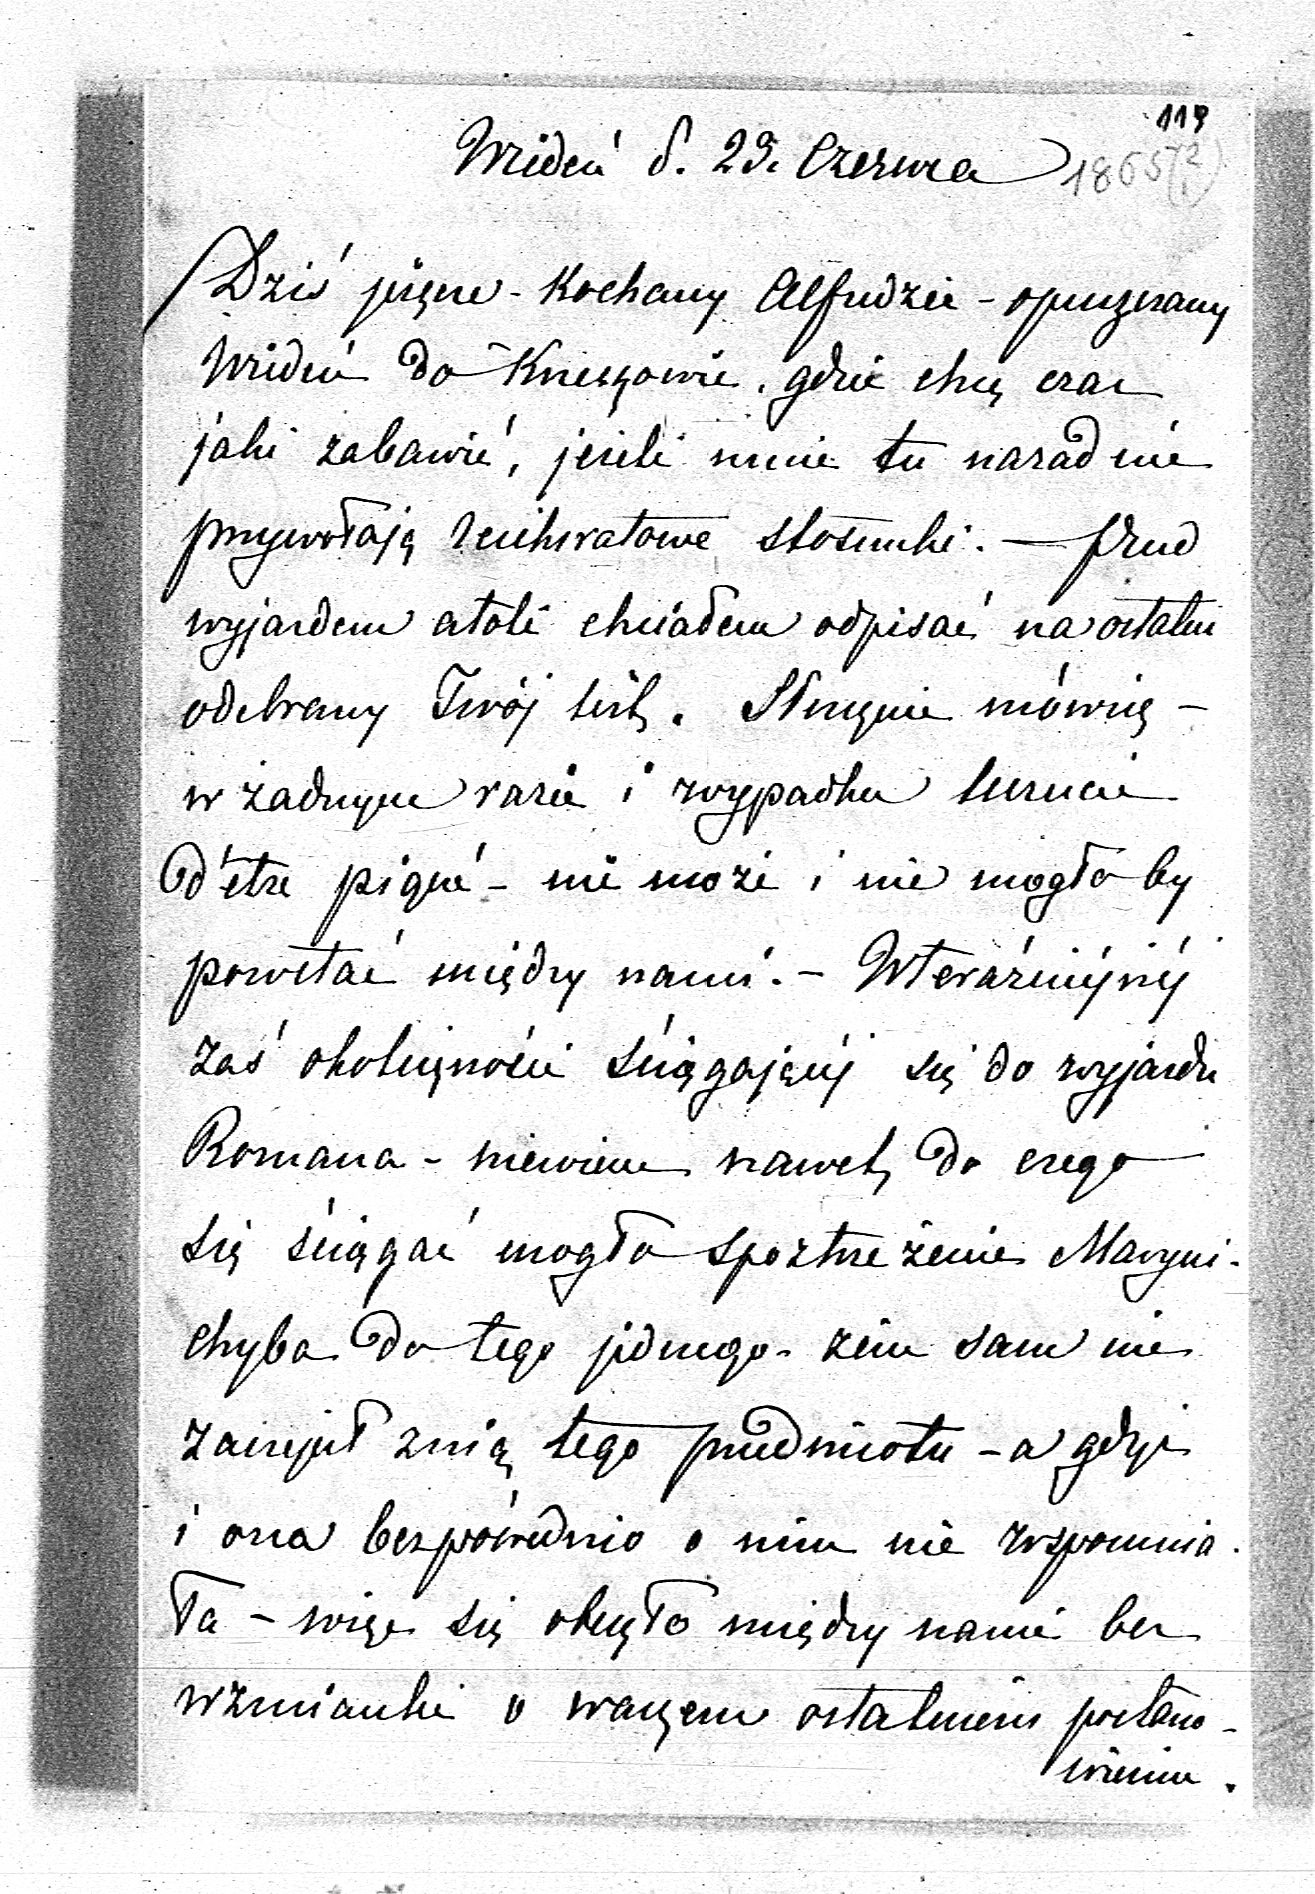 119
Wiedeń d. 29. Czerwca 1865 (2/1)
Dziś jeszcze - Kochany Alfredzie - opuszczamy
Wiedeń do Krzeszowic, gdzie chcę czas
jaki zabawić, jeżeli mnie tu narad nie
przywołają reichsratowe stosunki. — Przed
wyjazdem atoli chciałem odpisać na ostatni
odebrany Twój list. Słusznie mówisz -
w żadnym razie i wypadku uczucie
d'être piqué - nie może i nie mogło by
powstać między nami. - W teraźniejszej
zaś okoliczności ściągającej się do wyjazdu
Romana - niewiem nawet do czego
się ściągać mogło spostrzeżenie Maryni -
chyba do tego jednego - żem sam nie
zaczepił z nią tego przedmiotu - a gdy i
i ona bezpośrednio o nim nie wspomnia -
ła - więc się obeszło między nami bez
wzmianki o waszem ostatniem postano -
wieniu.